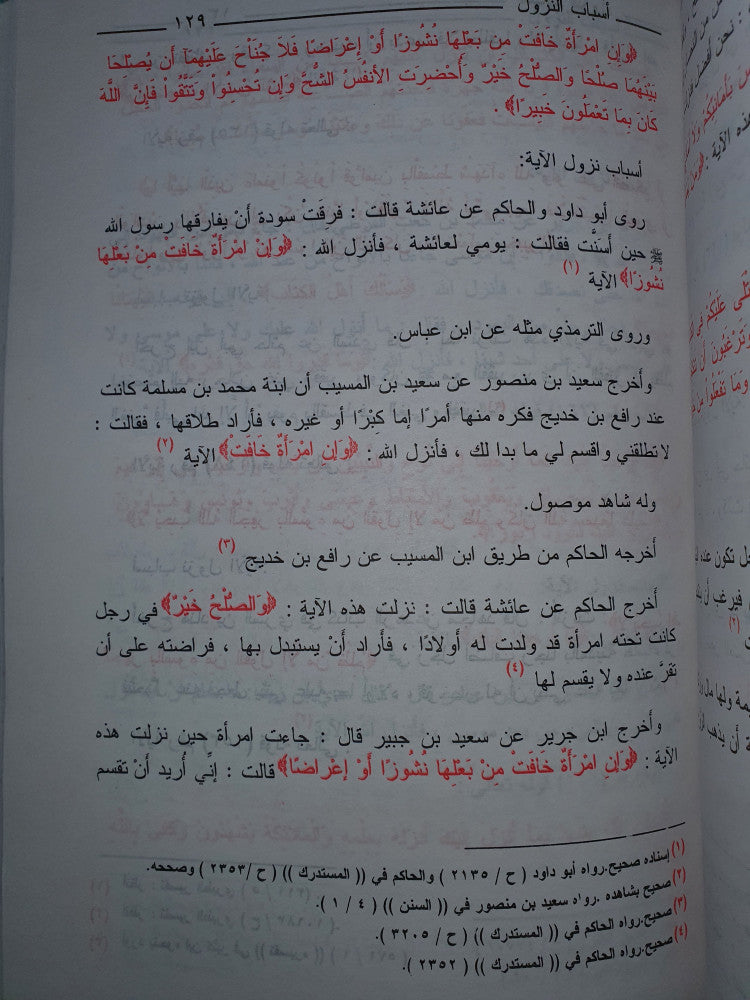 أسباب النزول ١٢٩
﴿وَإِنِ امْرَأَةٌ خَافَتْ مِن بَعْلِهَا نُشُوزًا أَوْ إِعْرَاضًا فَلَا جُنَاْحَ عَلَيْهِمَا أَن يُصْلِحَا
بَيْنَهُمَا صُلْحًا وَالصُّلْحُ خَيْرٌ وَأُحْضِرَتِ الأنفُسُ الشُّحَّ وَإِن تُحْسِنُواْ وَتَتَّقُواْ فَإِنَّ اللَّهَ
كَانَ بِمَا تَعْمَلُونَ خَبِيرًا﴾ .
أسباب نزول الآية:
روى أبو داود والحاكم عن عائشة قالت : فرقَتْ سودة أنْ يفارقها رسول الله
ﷺ حين أسَنَّت فقالت : يومي لعائشة ، فأنزل الله : ﴿وَإِنْ امْرَأَةٌ خَافَتْ مِنْ بَعْلِهَا
نُشُوزًا﴾ الآية (١)
وروى الترمذي مثله عن ابن عباس.
وأخرج سعيد بن منصور عن سعيد بن المسيب أن ابنة محمد بن مسلمة كانت
عند رافع بن خديج فكره منها أمرًا إما كِبْرًا أو غيره ، فأراد طلاقها ، فقالت :
لاتطلقني واقسم لي ما بدا لك ، فأنزل الله : ﴿وَإِنِ امْرَأَةٌ خَافَتْ﴾ الآية (٢)
وله شاهد موصول.
أخرجه الحاكم من طريق ابن المسيب عن رافع بن خديج (٣)
أخرج الحاكم عن عائشة قالت : نزلت هذه الآية : ﴿وَالصُلْحُ خَيْرٌ﴾ في رجل
كانت تحته امرأة قد ولدت له أولادًا ، فأراد أنْ يستبدل بها ، فراضته على أن
تقرَّ عنده ولا يقسم لها (٤)
وأخرج ابن جرير عن سعيد بن جبير قال : جاءت امرأة حين نزلت هذه
الآية : ﴿وَإِنِ امْرَأَةٌ خَافَتْ مِنْ بَعْلِهَا نُشُوزًا أَوْ إعْرَاضًا﴾ قالت : إنِّي أريد أنْ تقسم
(١) إسناده صحيح.رواه أبو داود ( ح / ٢١٣٥ ) والحاكم في (( المستدرك )) ( ح / ٢٣٥٣ ) وصححه.
(٢) صحيح بشاهده .رواه سعيد بن منصور في (( السنن )) ( ٤ / ١ ).
(٣) صحيح.رواه الحاكم في (( المستدرك )) ( ح / ٣٢٠٥ ).
(٤) صحيح.رواه الحاكم في (( المستدرك )) ( ٢٣٥٢ ).